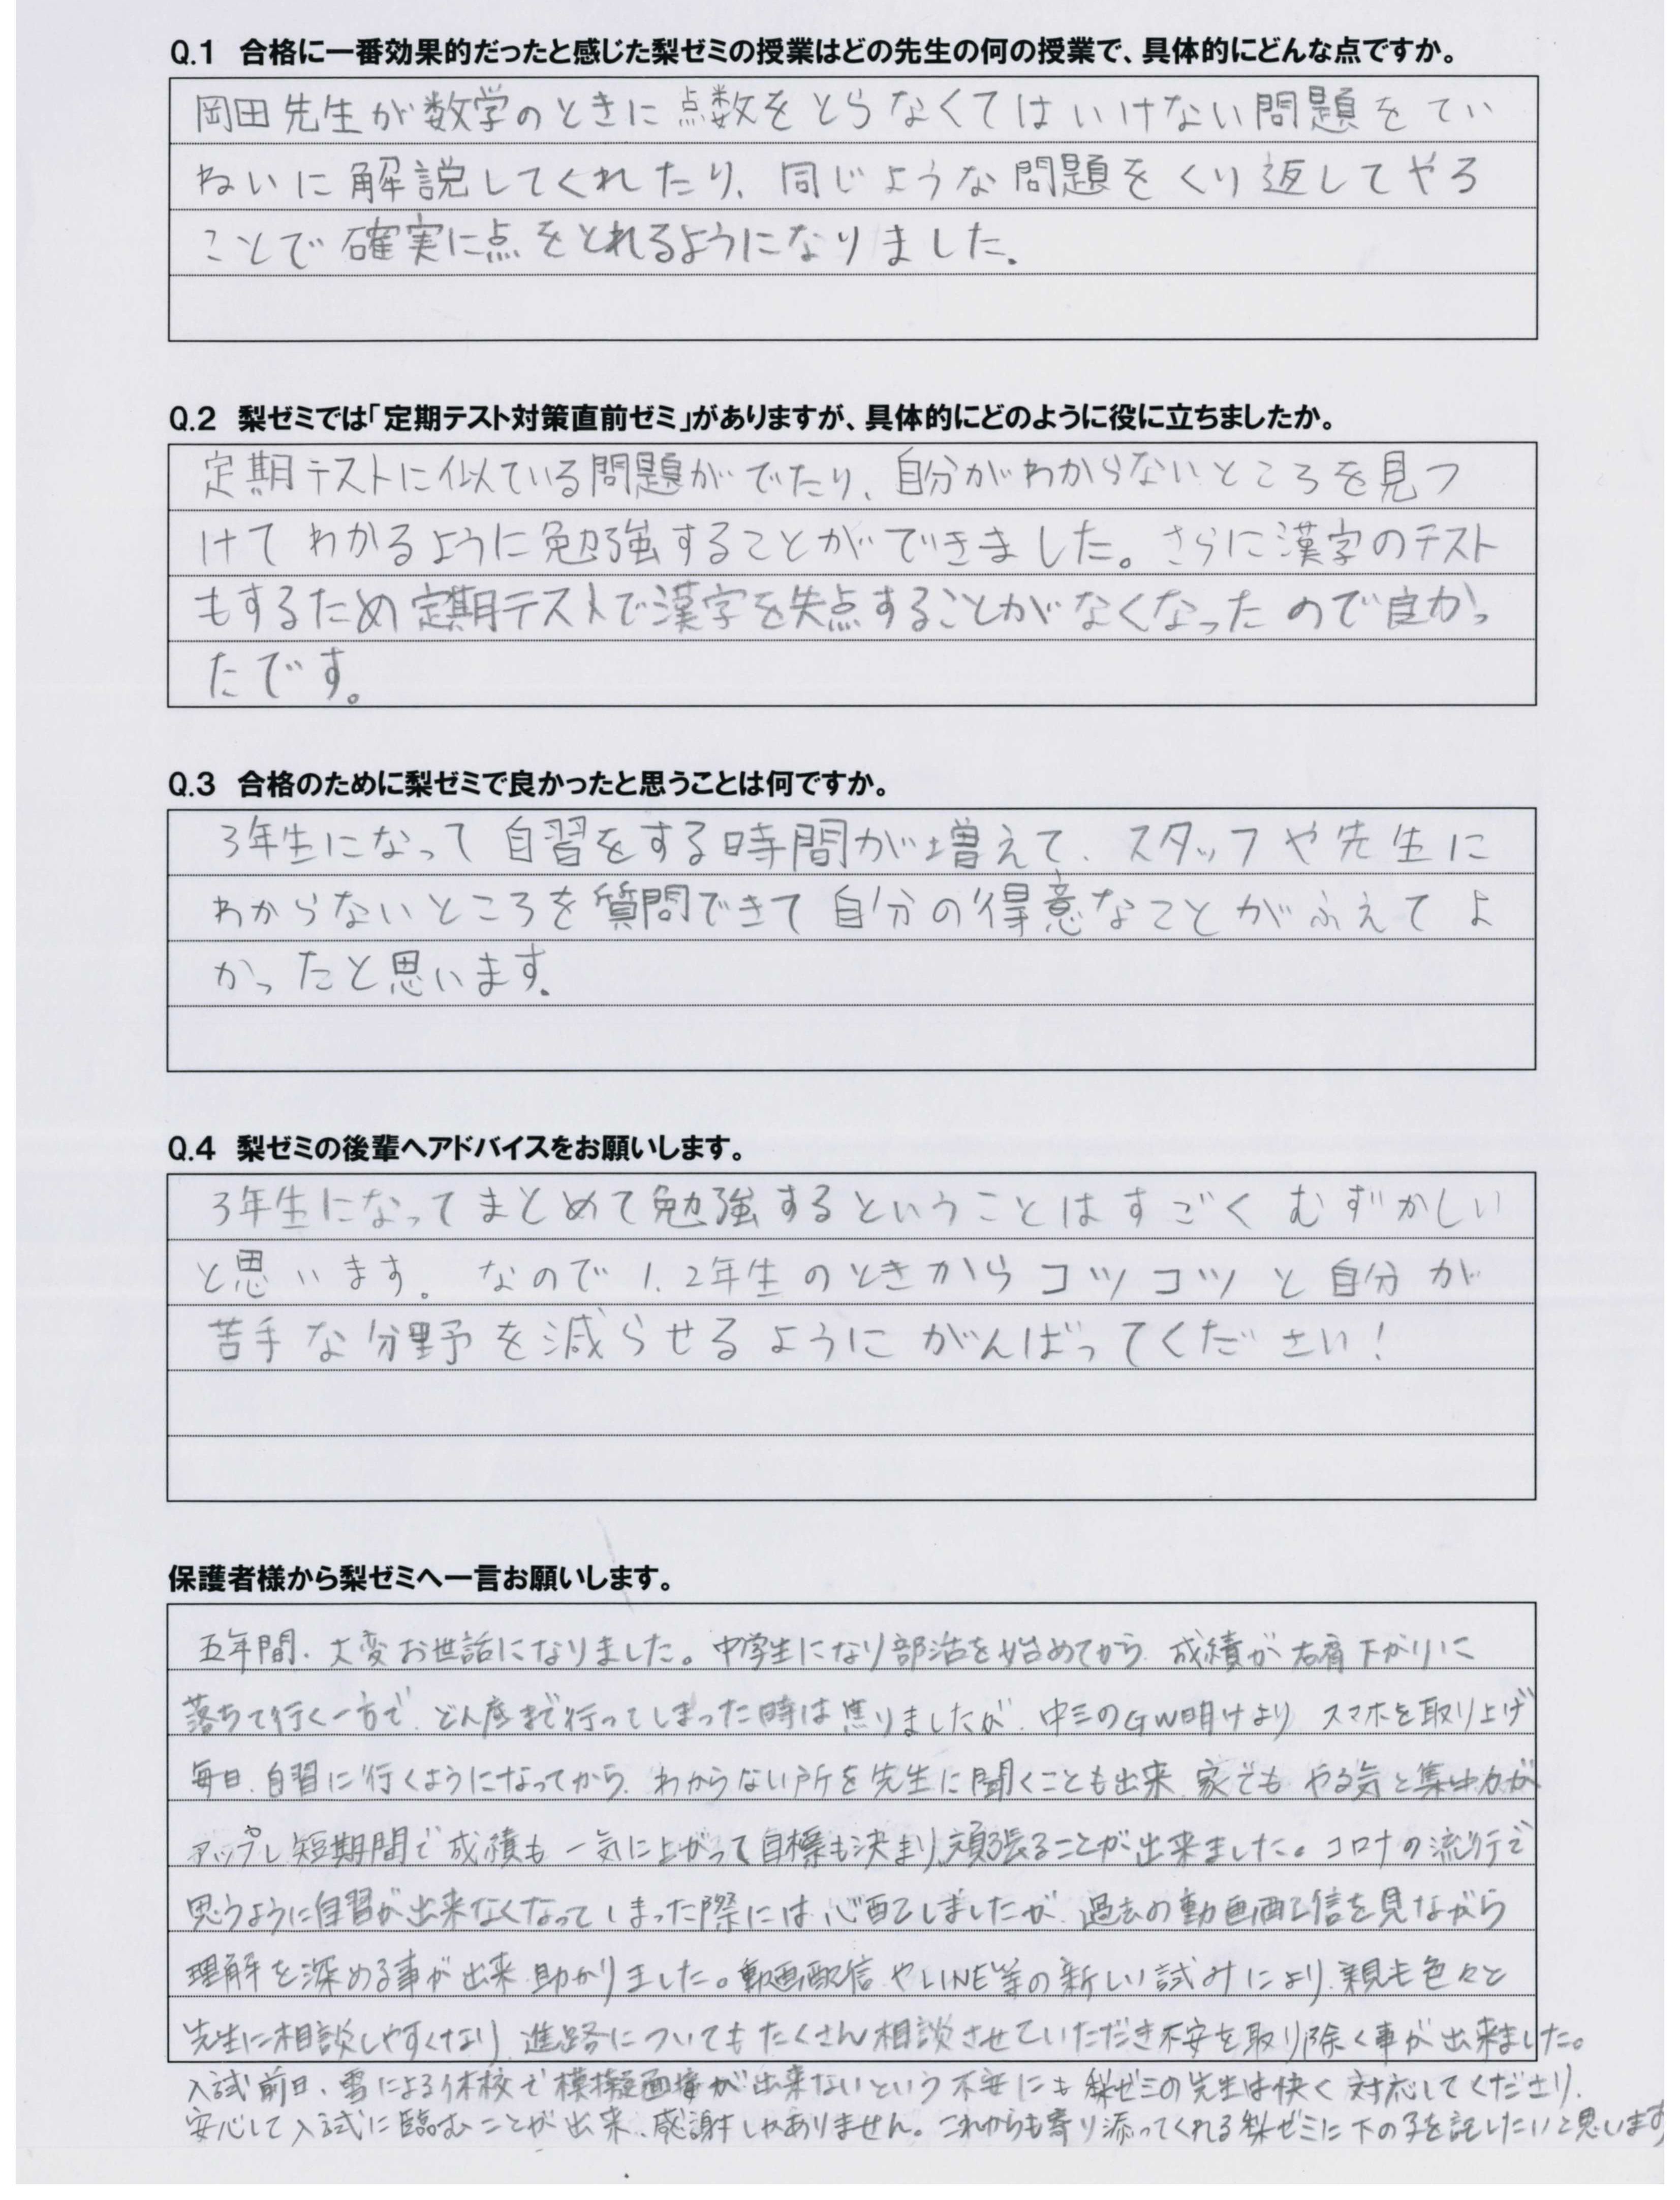 Q.1 合格に一番効果的だったと感じた梨ゼミの授業はどの先生の何の授業で、具体的にどんな点ですか。
岡田先生が数学のときに点数をとらなくてはいけない問題をてい
ねいに解説してくれたり、同じような問題をくり返してやる
ことで確実に点をとれるようになりました。
Q.2 梨ゼミでは「定期テスト対策直前ゼミ」がありますが、具体的にどのように役に立ちましたか。
定期テストに似ている問題がでたり、自分がわからないところを見つ
けてわかるように勉強することができました。さらに漢字のテスト
もするため定期テストで漢字を失点することがなくなったので良かっ
たです。
Q.3 合格のために梨ゼミで良かったと思うことは何ですか。
3年生になって自習をする時間が増えて、スタッフや先生に
わからないところを質問できて自分の得意なことがふえてよ
かったと思います。
Q.4 梨ゼミの後輩へアドバイスをお願いします。
3年生になってまとめて勉強するということはすごくむずかしい
と思います。なので1、2年生のときからコツコツと自分が
苦手な分野を減らせるようにがんばってください!
保護者様から梨ゼミへ一言お願いします。
五年間、大変お世話になりました。中学生になり部活を始めてから、成績が右肩下がりに
落ちて行く一方で、どん底まで行ってしまった時は焦りましたが、中三のGW明けより、スマホを取り上げ
毎日、自習に行くようになってから、わからない所を先生に聞くことも出来、家でもやる気と集中力が
アップし短期間で成績も一気に上がって目標も決まり、頑張ることが出来ました。コロナの流行で
思うように自習が出来なくなってしまった際には、心配しましたが、過去の動画配信を見ながら
理解を深める事が出来、助かりました。動画配信やLINE等の新しい試みにより、親も色々と
先生に相談しやすくなり、進路についてもたくさん相談させていただき不安を取り除く事が出来ました。
入試前日、雪による休校で模擬面接が出来ないという不安にも梨ゼミの先生は快く対応してくださり、
安心して入試に臨むことが出来、感謝しかありません。これからも寄り添ってくれる梨ゼミに下の子を託したいと思います